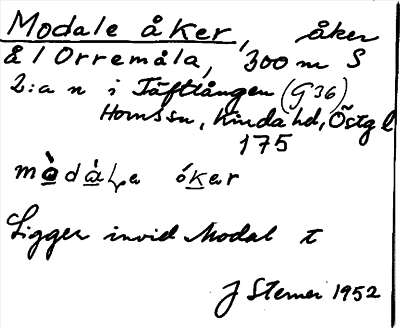 Modale åker, åker
å/Orremåla, 300 m S
2:a n i Täftlången (G36)
Hornssn, Kinda hd, Östgl
175
mòdàɧa ókər
Ligger invid Modal t
J Sterner 1952